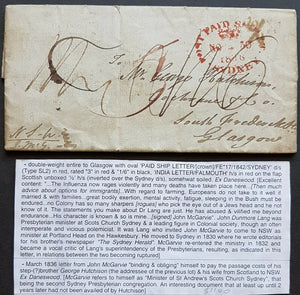 POST PAID SHIP
NO
SYDNEY
To
Mr. George
N.S.W.
- double-weight entire to Glasgow with oval 'PAID SHIP LETTER/[crown]/FE*17/1842/SYDNEY' d/s
(Type SL2) in red, rated "3" in red & "1/6" in black, 'INDIA LETTER/FALMOUTH' h/s in red on the flap,
Scottish unboxed '½' h/s (inverted over the Sydney d/s), somewhat soiled. Ex Danewood. [Excellent
content: "...The Influenza now rages violently and many deaths have taken place here...[Then much
advice about options for immigrants]. With regard to marrying, Europeans do not take to it well if
married & with families .great bodily exertion, mental activity, fatigue, sleeping in the Bush must be
endured...No Colony has so many sharpers [rogues] who pick the eye out of you if Jews and you
know of it. The statements you make about Dr Lang are just. He has abused & vilified me beyond
endurance...His character is known & so is mine...". Signed 'John McGarvie'. "John Dunmore Lang was
Presbyterian minister at Scots Church Sydney & a leading figure in colonial society, though an often
intemperate and vicious polemicist, it was Lang who invited John McGarvie to come to NSW as
minister at Portland Head on the Hawkesbury. He moved to Sydney in 1830 where he wrote editorials
for his brother's newspaper "The Sydney Herald". McGarvie re-entered the ministry in 1832 and
became a vocal critic of Lang's superintendency of the Presbyterians, resulting, as indicated in this
letter, in relations between the two becoming ruptured]
- March 1836 letter from John McGarvie "binding & obliging" himself to pay the passage costs of his
step-(?)brother George Hutchison (the addressee of the previous lot) & his wife from Scotland to NSW.
Ex Danewood. [McGarvie refers to himself as "Minister of St Andrew's Scots Church Sydney", that
being the second Sydney Presbyterian congregation. An interesting document that at least up until 2
years later had not been availed of by Hutchison]